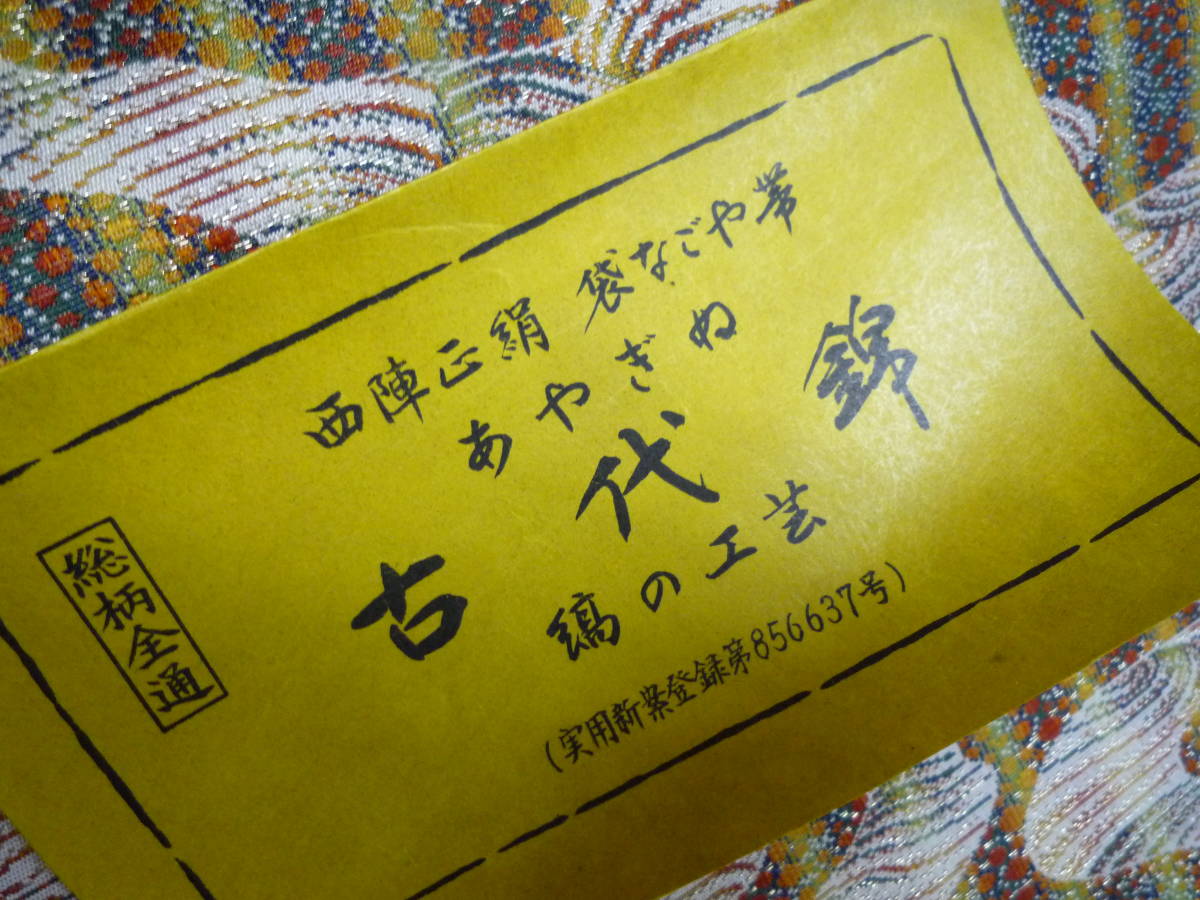 西陣正絹 袋なごや帯
あやぎぬ
古代錦
縞の工芸
(実用新案登録第856637号)
総柄全通